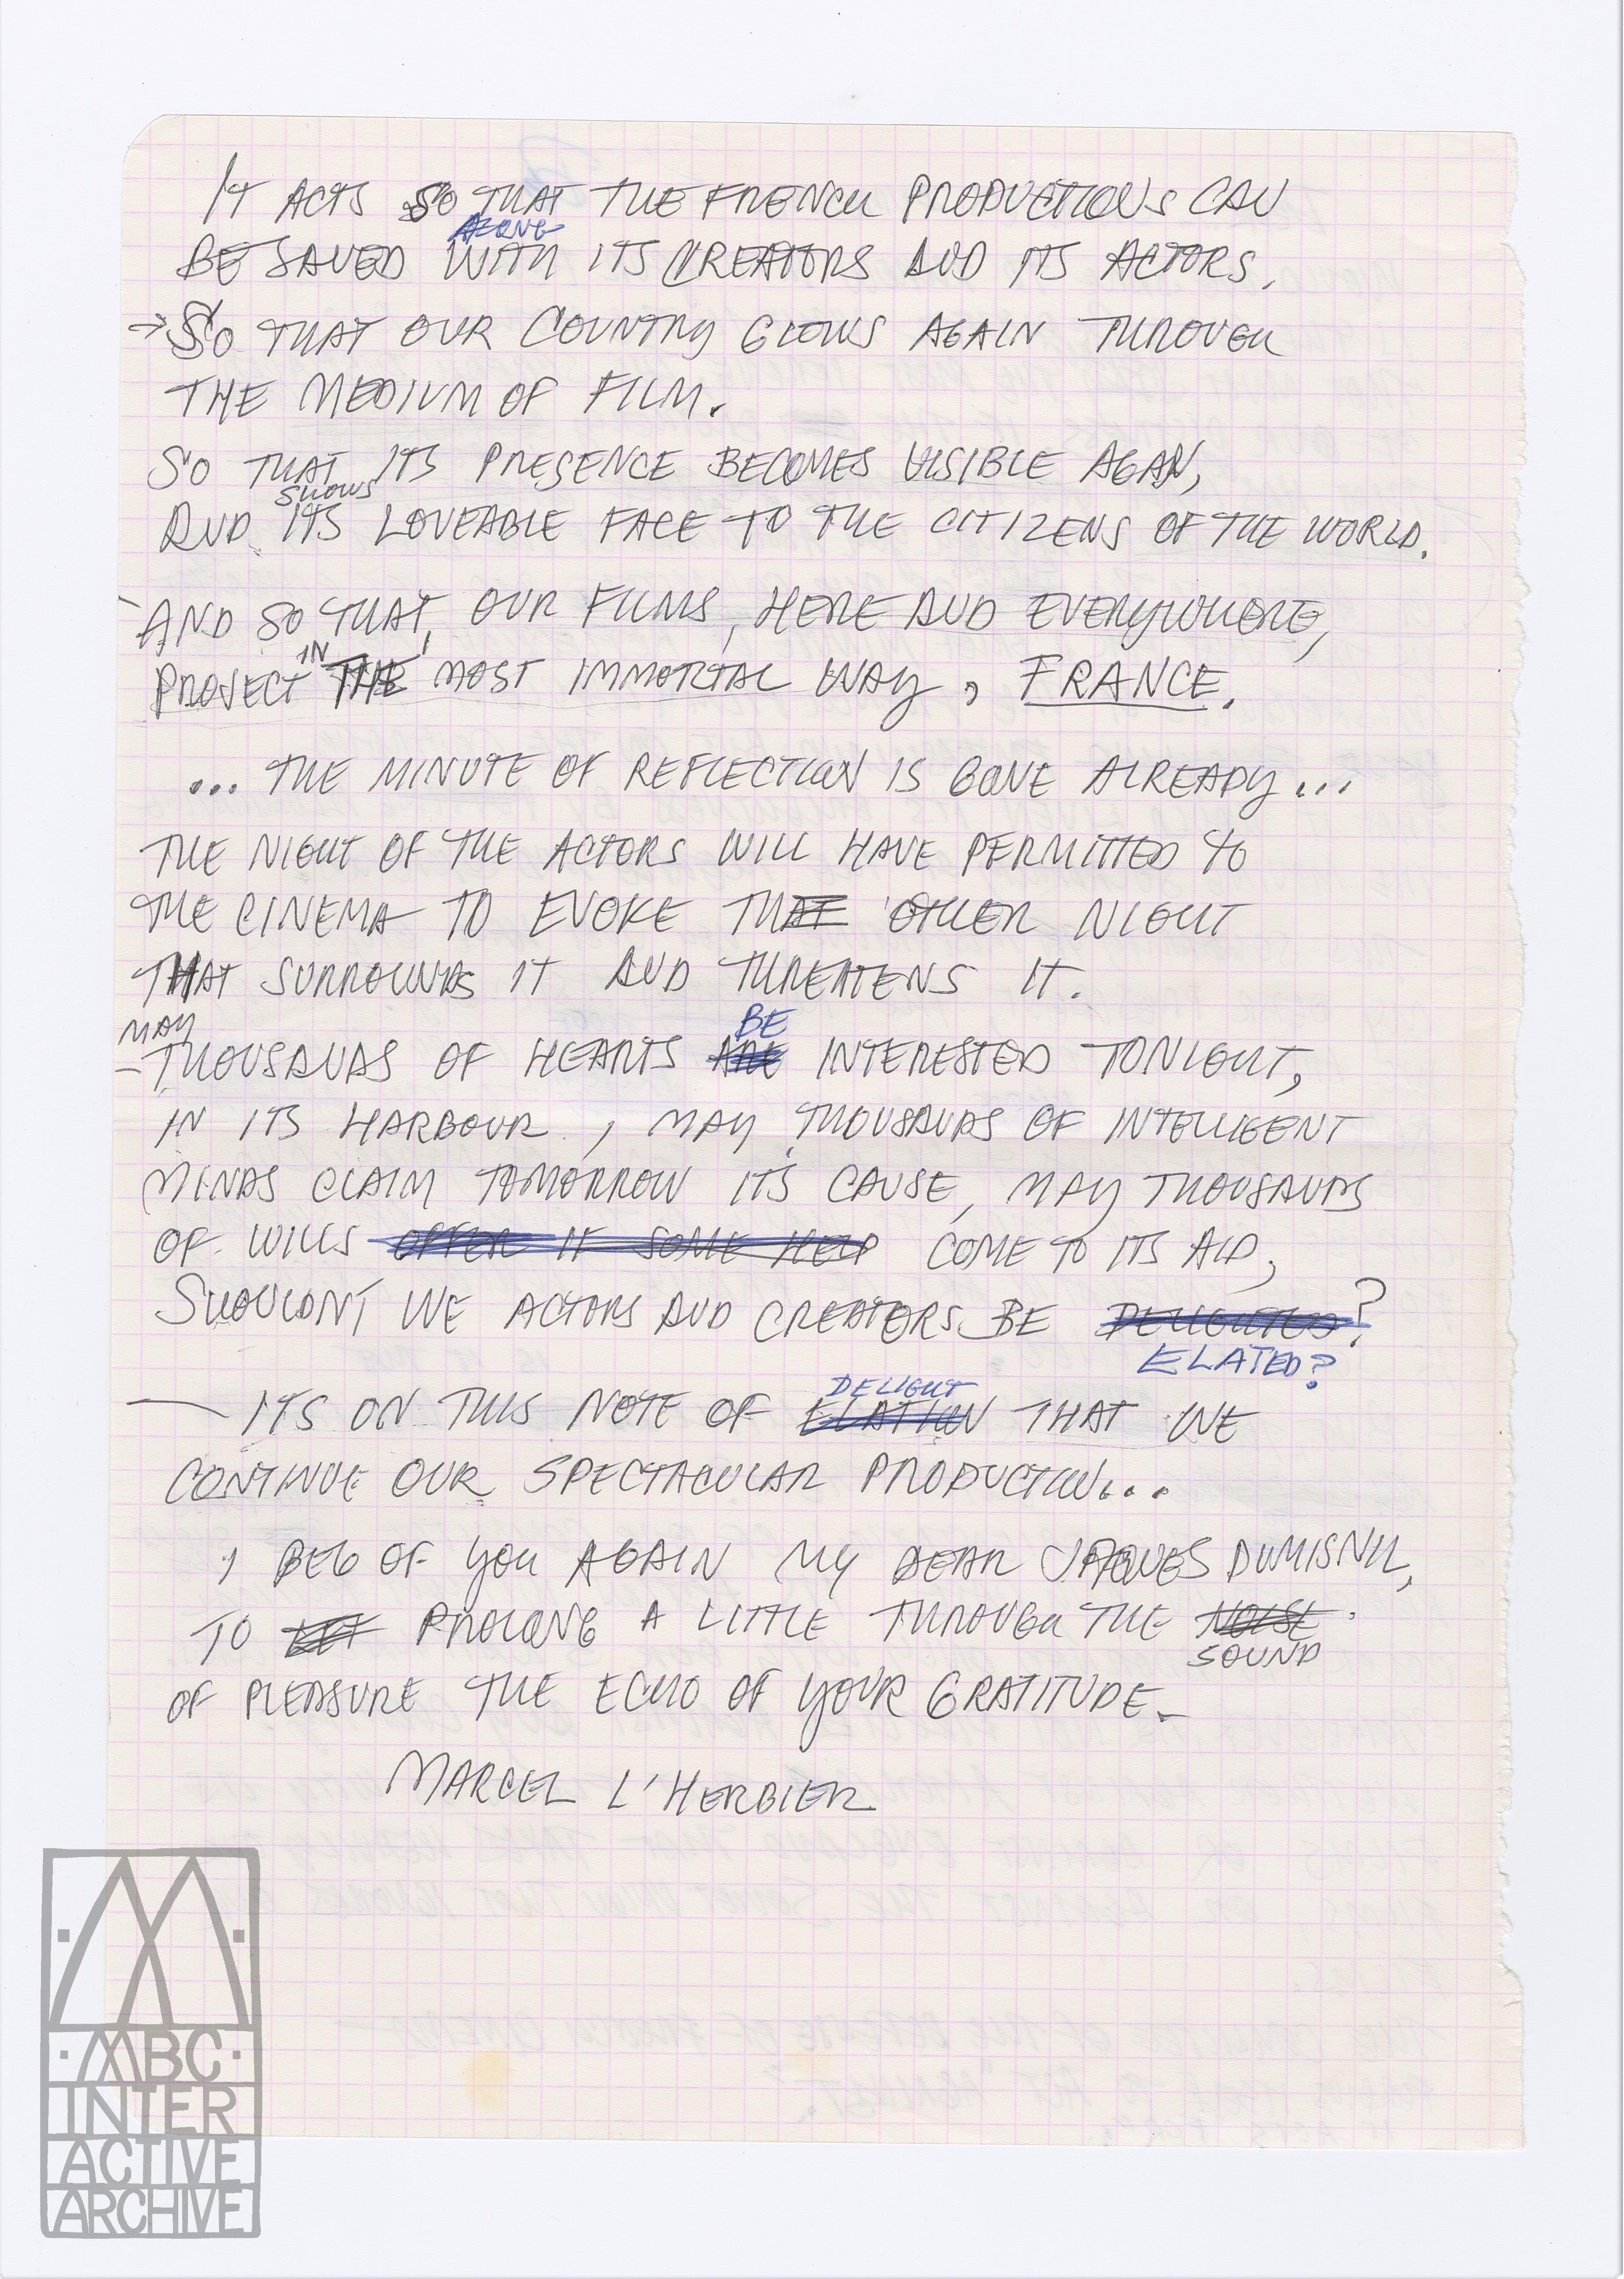 IT ACTS SO THAT THE FRENCH PRODUCTIONS CAN
ALONG
BE SAVED WITH ITS CREATORS AND ITS ACTORS.
→ SO THAT OUR COUNTRY GLOWS AGAIN THROUGH
THE MEDIUM OF FILM.
SO THAT ITS PRESENCE BECOMES VISIBLE AGAIN,
SHOWS
AND ITS LOVEABLE FACE TO THE CITIZENS OF THE WORLD.
- AND SO THAT, OUR FILMS, HERE AND EVERYWHERE,
IN
PROJECT THE MOST IMMORTAL WAY, FRANCE.
... THE MINUTE OF REFLECTION IS GONE ALREADY...
THE NIGHT OF THE ACTORS WILL HAVE PERMITTED TO
THE CINEMA TO EVOKE THAT OTHER NIGHT
THAT SURROUNDS IT AND THREATENS IT.
MAY BE
- THOUSANDS OF HEARTS ARE INTERESTED TONIGHT,
IN ITS HARBOUR, MAY THOUSANDS OF INTELLIGENT
MINDS CLAIM TOMORROW ITS CAUSE, MAY THOUSANDS
OF WILLS OFFER IT SOME HELP COME TO ITS AID,
SHOULDN'T WE ACTORS AND CREATORS BE DELIGHTED?
ELATED?
DELIGHT
— ITS ON THIS NOTE OF ELATION THAT WE
CONTINUE OUR SPECTACULAR PRODUCTION...
I BEG OF YOU AGAIN MY DEAR JACQUES DUMISNIL,
TO LET PROLONG A LITTLE THROUGH THE NOISE
SOUND
OF PLEASURE THE ECHO OF YOUR GRATITUDE.
MARCEL L'HERBIER
MBC
INTER
ACTIVE
ARCHIVE